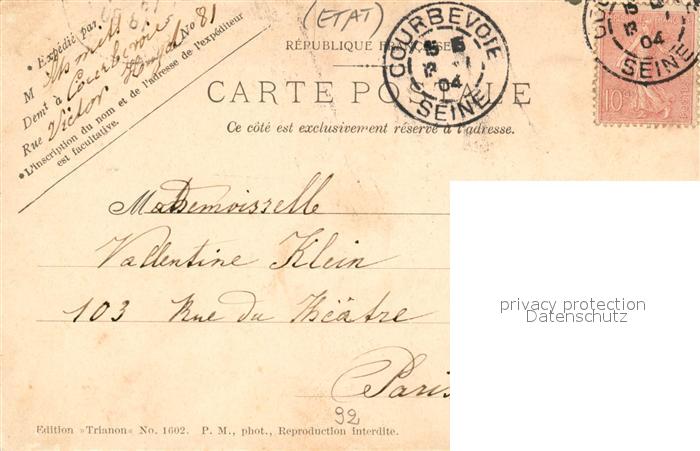 (ETAT)
RÉPUBLIQUE FRANÇAISE
CARTE POSTALE
Ce côté est exclusivement réservé à l'adresse.
Expédié par
M
Demt à Courbevoie
Rue Victor Hugo No 81
L'inscription du nom et de l'adresse de l'expéditeur
est facultative.
COURBEVOIE
04
SEINE
04
SEINE
10
Mademoisselle
Vallentine Klein
103 Rue du Théâtre
Paris
92
privacy protection
Datenschutz
Edition »Trianon« No. 1602. P. M., phot., Reproduction interdite.